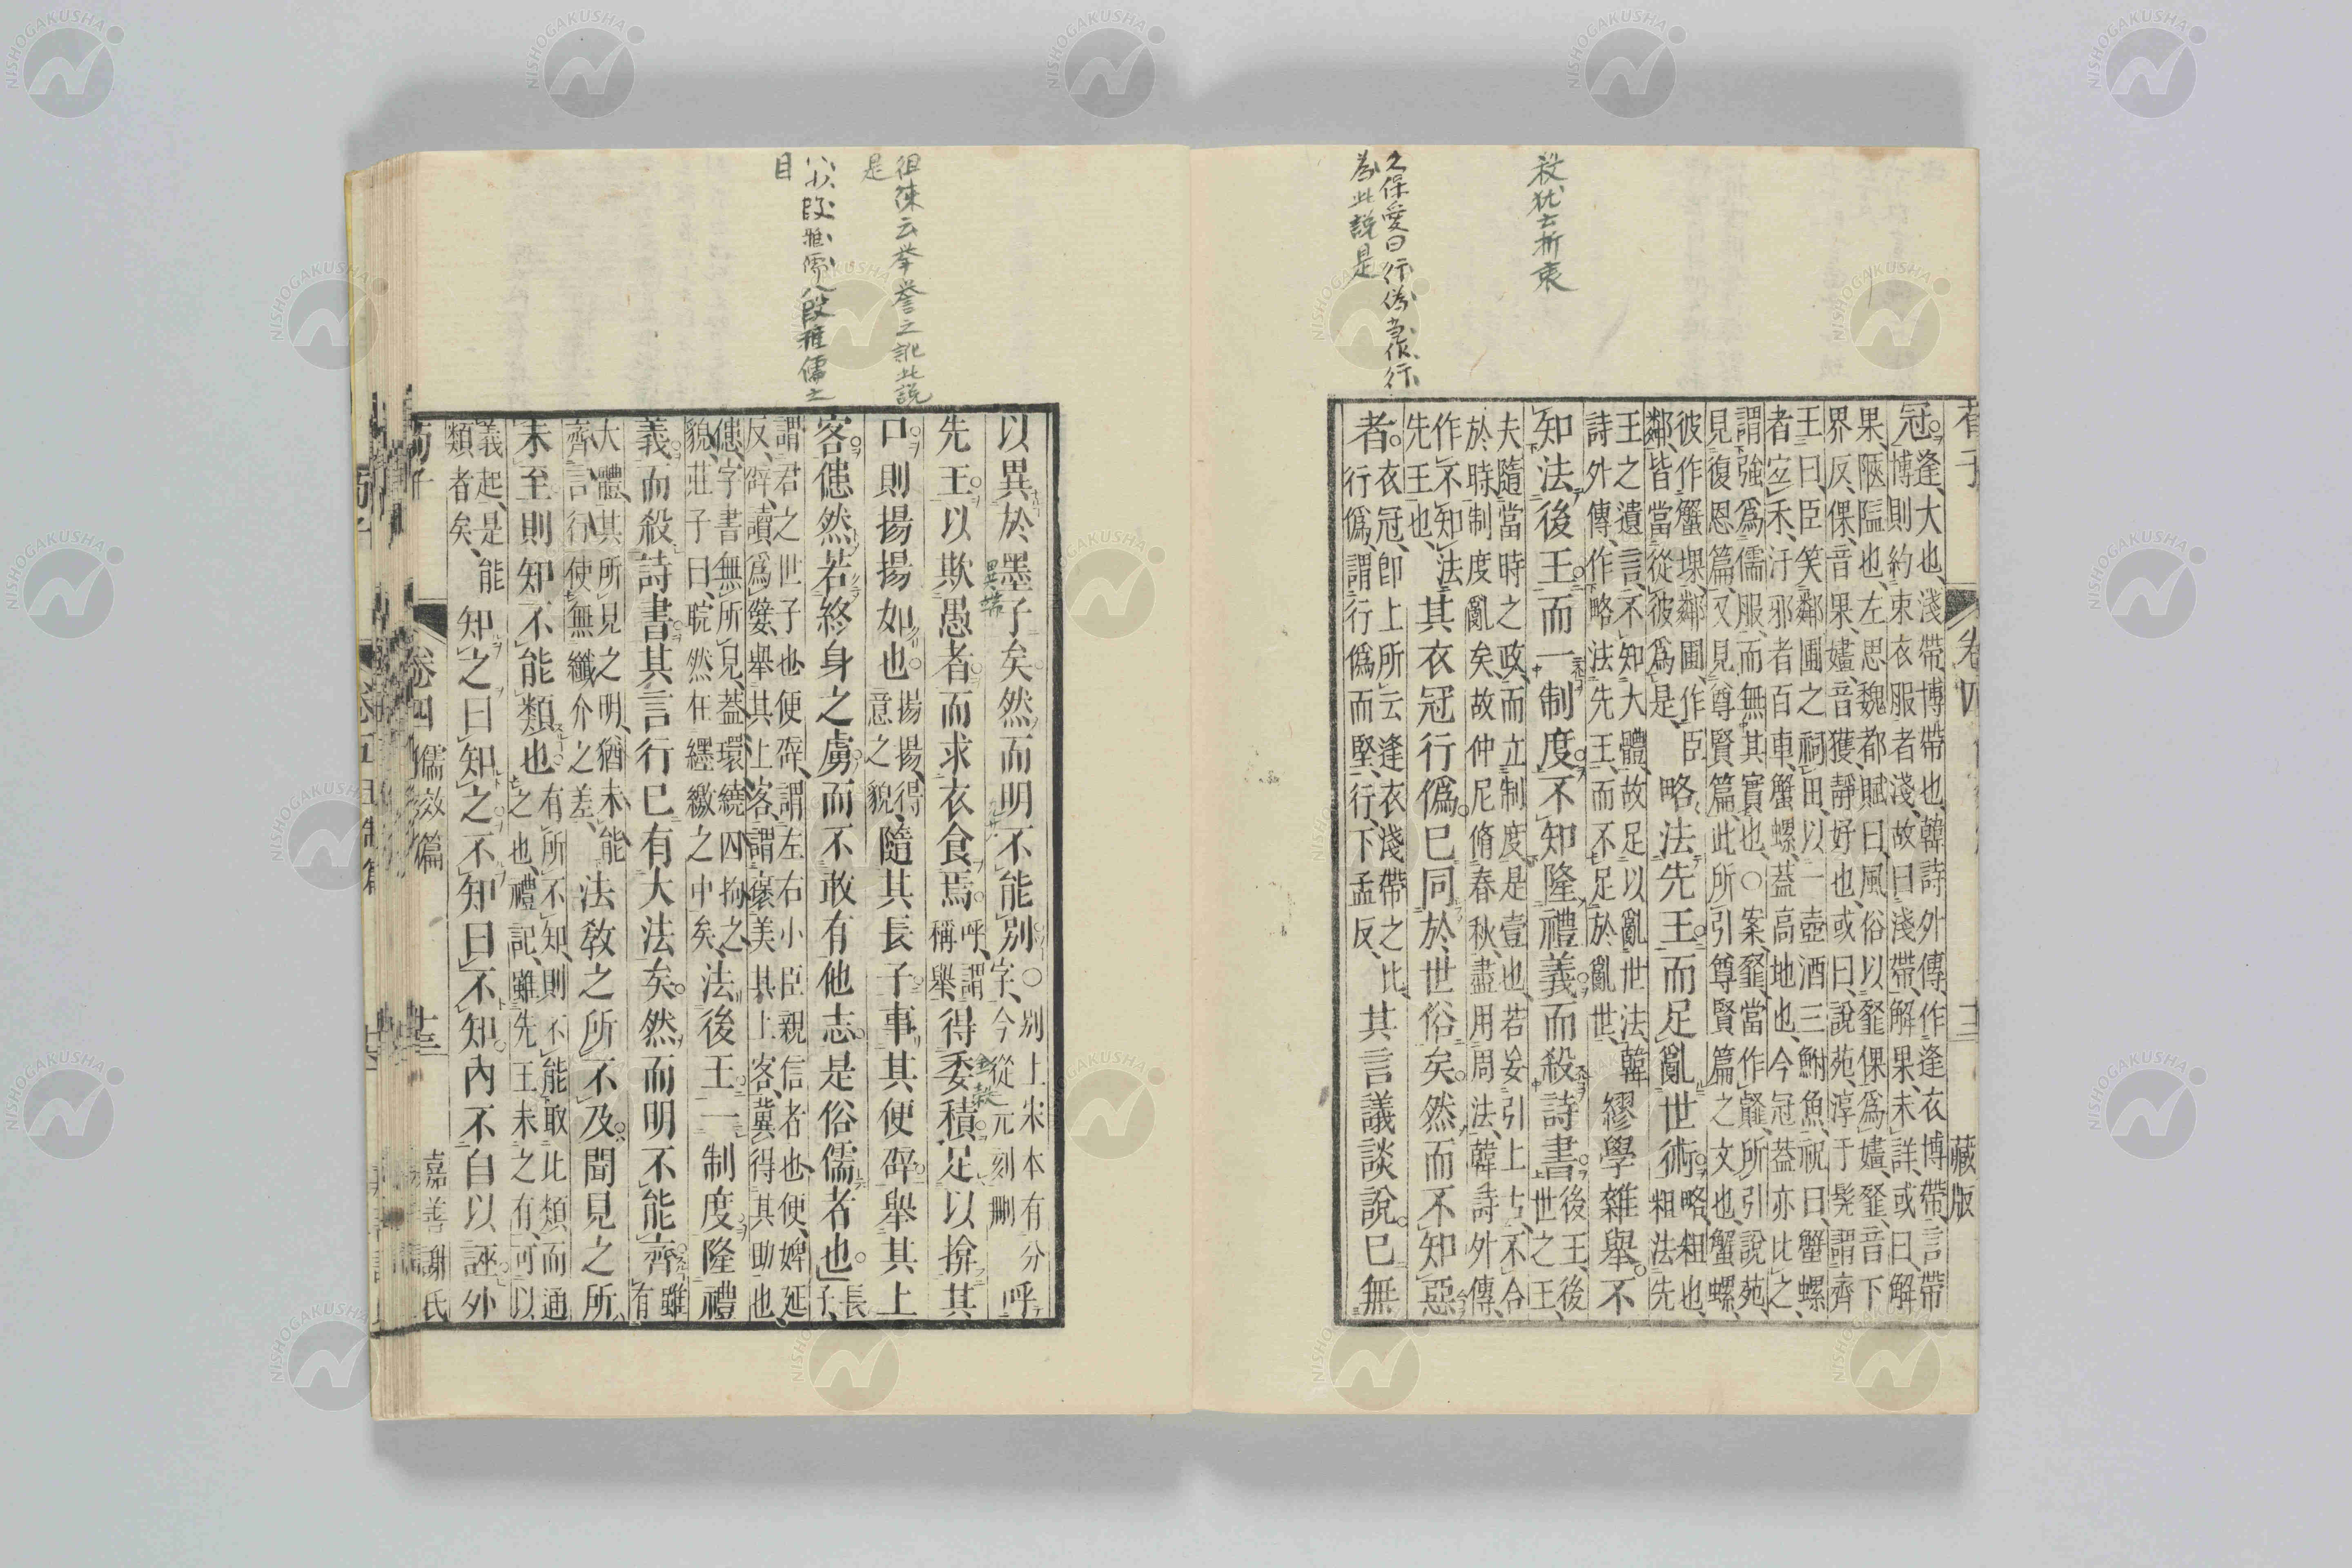 殺犹云折衷
久保愛曰行偽當作行
為此説是
荀子
卷四
十三
藏版
冠逢大也淺帶博帶也韓詩外傳作逢衣博帶言帶
博則約束衣服者淺故曰淺帶解果未詳或曰解
果陿隘也左思魏都賦曰風俗以韰倮爲嫿韰音下
界反倮音果嫿音獲靜好也或曰說苑淳于髡謂齊
王曰臣笑鄰圃之祠田以一壺酒三鮒魚祝曰蟹螺
者宐禾汙邪者百車蟹螺蓋高地也今冠蓋亦比之
謂強爲儒服而無其實也○案韰當作䪥所引說苑
見復恩篇又見尊賢篇此所引尊賢篇之文也蟹螺
彼作蟹堁鄰圃作臣
鄰皆當從彼爲是
略法先王而足亂世術
略粗也
粗法先
王之遺言不知大體故足以亂世法韓
詩外傳作略法先王而不足於亂世
繆學雜舉不
知法後王而一制度不知隆禮義而殺詩書
後王後
世之王
夫隨當時之政而立制度是壹也若妄引上古不合
於時制度亂矣故仲尼脩春秋盡用周法韓詩外傳
作不知法
先王也
其衣冠行僞已同於世俗矣然而不知惡
者
衣冠卽上所云逢衣淺帶之比
行僞謂行僞而堅行下孟反
其言議談說已無
徂徠云舉譽之訛此説
是
小段雅儒八段雅儒之
目
異端
金穀
以異於墨子矣然而明不能別
○別上宋本有分
字今從元刻刪
呼
先王以欺愚者而求衣食焉
呼謂
稱舉
得委積足以揜其
口則揚揚如也
揚揚得
意之貌
隨其長子事其便辟舉其上
客㒔然若終身之虜而不敢有他志是俗儒者也
長
子
謂君之世子也便辟謂左右小臣親信者也便婢延
反辟讀爲嬖舉其上客謂襃美其上客冀得其助也
㒔字書無所見蓋環繞囚拘之
貌莊子曰睆然在纆繳之中矣
法後王一制度隆禮
義而殺詩書其言行已有大法矣然而明不能齊
雖
有
大體其所見之明猶未能
齊言行使無纖介之差
法敎之所不及聞見之所
未至則知不能類也
有所不知則不能取此類而通
之也禮記雖先王未之有可以
義起是能
類者矣
知之曰知之不知曰不知內不自以誣外
荀子
卷四儒效篇
十三
嘉善謝氏